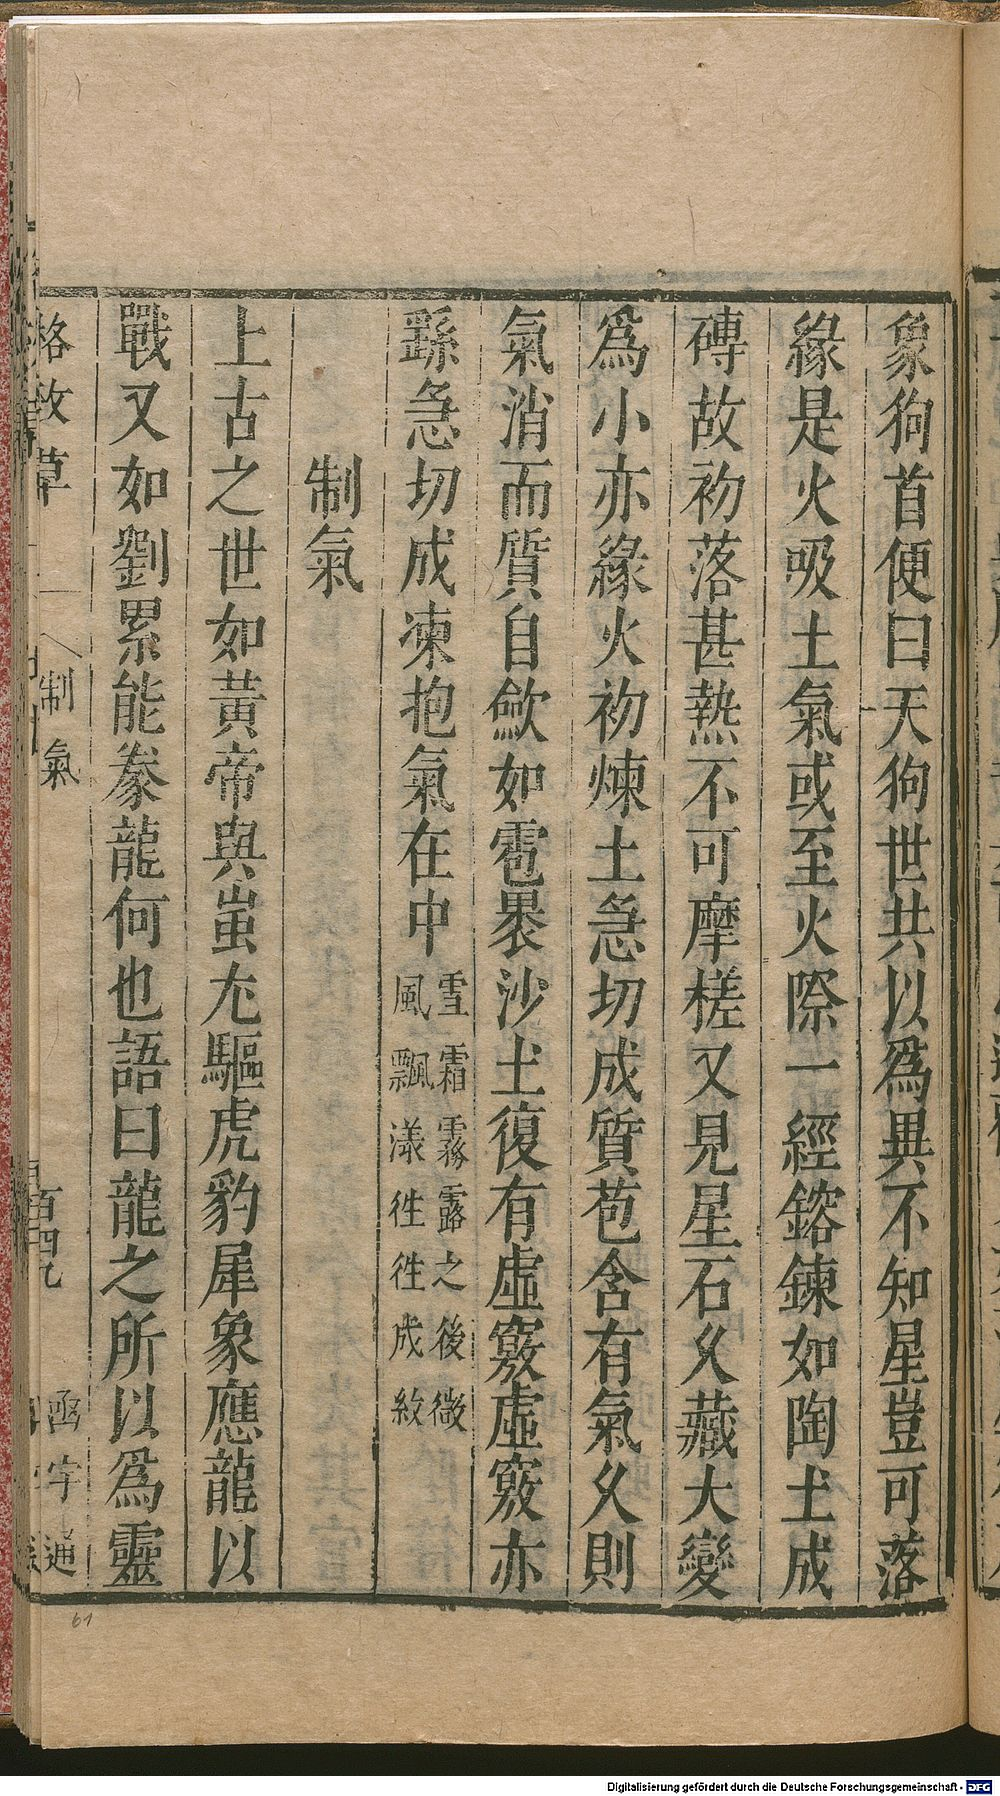 象狗首便曰天狗世共以爲異不知星豈可落
緣是火吸土氣或至火際一經鎔鍊如陶土成
磚故初落甚熱不可摩槎又見星石乆藏大變
爲小亦緣火初煉土急切成質苞含有氣乆則
氣消而質自歛如雹褁沙土復有虛竅虛竅亦
繇急切成凍抱氣在中
雪霜霧露之後微
風飄漾徃徃成紋
制氣
上古之世如黃帝與蚩尤驅虎豹犀象應龍以
戰又如劉累能豢龍何也語曰龍之所以爲靈
格致草
制氣
百四九
函宇通
61
Digitalisierung gefördert durch die Deutsche Forschungsgemeinschaft - DFG